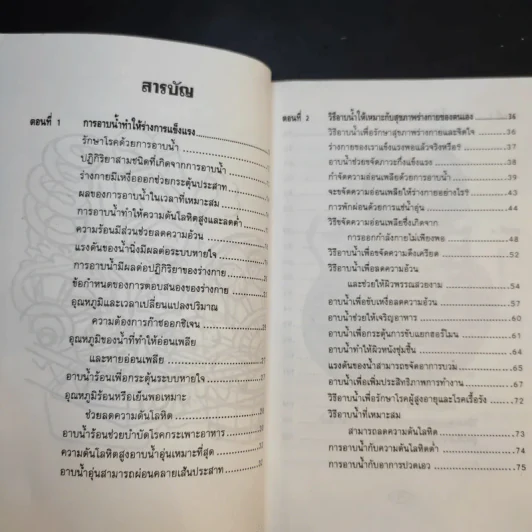 สารบัญ
ตอนที่ 1 การอาบน้ำทำให้ร่างการแข็งแรง
รักษาโรคด้วยการอาบน้ำ
ปฏิกิริยาสามชนิดที่เกิดจากการอาบน้ำ
ร่างกายมีเหงื่อออกช่วยกระตุ้นประสาท
ผลของการอาบน้ำในเวลาที่เหมาะสม
การอาบน้ำทำให้ความดันโลหิตสูงและลดต่ำ
ความร้อนมีส่วนช่วยลดความอ้วน
แรงดันของน้ำนิ่งมีผลต่อระบบหายใจ
การอาบน้ำมีผลต่อปฏิกิริยาของร่างกาย
ข้อกำหนดของการตอบสนองของร่างกาย
อุณหภูมิและเวลาเปลี่ยนแปลงปริมาณ
ความต้องการก๊าซออกซิเจน
อุณหภูมิของน้ำที่ทำให้อ่อนเพลีย
และหายอ่อนเพลีย
อาบน้ำร้อนเพื่อกระตุ้นระบบหายใจ
อุณหภูมิร้อนหรือเย็นพอเหมาะ
ช่วยลดความดันโลหิต
อาบน้ำร้อนช่วยบำบัดโรคกระเพาะอาหาร
ความดันโลหิตสูงอาบน้ำอุ่นเหมาะที่สุด
อาบน้ำอุ่นสามารถผ่อนคลายเส้นประสาท
ตอนที่ 2 วิธีอาบน้ำให้เหมาะกับสุขภาพร่างกายของตนเอง 36
วิธีอาบน้ำเพื่อรักษาสุขภาพร่างกายและจิตใจ 36
ร่างกายของเราแข็งแรงพอแล้วจริงหรือ? 37
อาบน้ำช่วยขจัดภาวะกึ่งแข็งแรง 38
กำจัดความอ่อนเพลียด้วยการอาบน้ำ 40
จะขจัดความอ่อนเพลียให้ร่างกายอย่างไร? 41
การพักผ่อนด้วยการแช่น้ำอุ่น 44
วิธีขจัดความอ่อนเพลียซึ่งเกิดจาก
การออกกำลังกายไม่เพียงพอ 48
วิธีอาบน้ำเพื่อขจัดความตึงเครียด 49
วิธีอาบน้ำเพื่อลดความอ้วน
และช่วยให้ผิวพรรณสวยงาม 54
อาบน้ำเพื่อขับเหงื่อลดความอ้วน 57
อาบน้ำช่วยให้เจริญอาหาร 58
อาบน้ำเพื่อกระตุ้นการขับแยกฮอร์โมน 61
อาบน้ำทำให้ผิวหนังชุ่มชื้น 64
แรงดันของน้ำสามารถขจัดอาการบวม 65
อาบน้ำเพื่อเพิ่มประสิทธิภาพการทำงาน 67
วิธีอาบน้ำเพื่อรักษาโรคผู้สูงอายุและโรคเรื้อรัง 72
วิธีอาบน้ำที่เหมาะสม
สามารถลดความดันโลหิต 73
การอาบน้ำกับความดันโลหิตต่ำ 74
การอาบน้ำกับอาการปวดเอว 75